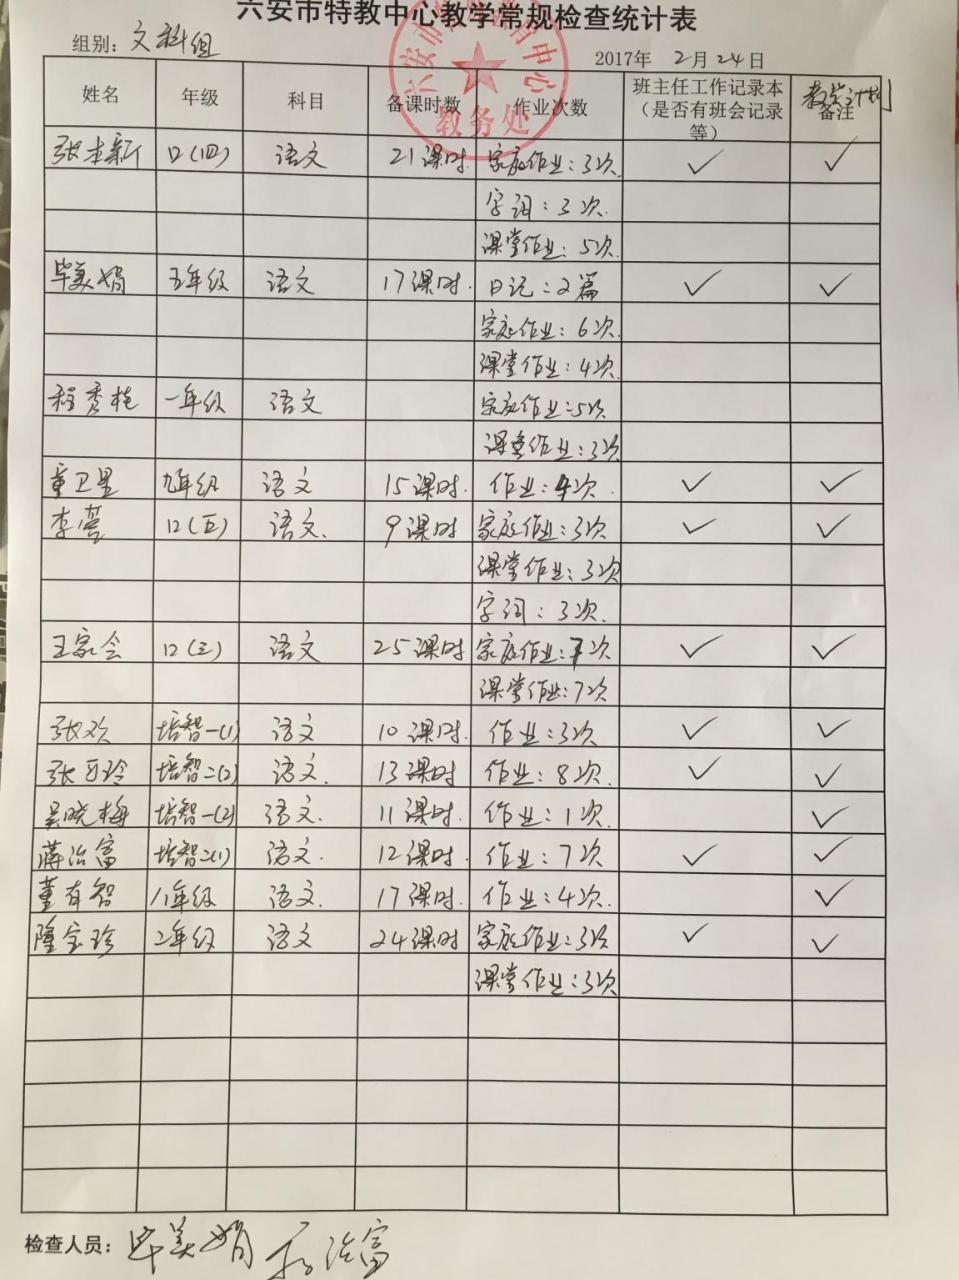 六安市特教中心教学常规检查统计表
组别：文科组 2017年 2月 24日
姓名 年级 科目 备课时数 作业次数 班主任工作记录本（是否有班会记录等） 教学计划 备注
六安市 教育中心 教务处
张本新 口(四) 语文 21课时 家庭作业：3次 ✓ ✓
字词：3次
课堂作业：5次
毕美娟 五年级 语文 17课时 日记：2篇 ✓ ✓
家庭作业：6次
课堂作业：4次
程秀桂 一年级 语文 家庭作业：5次
课堂作业：3次
童卫星 九年级 语文 15课时 作业：4次 ✓ ✓
李蕓 口(五) 语文 9课时 家庭作业：3次 ✓ ✓
课堂作业：3次
字词：3次
王家会 口(三) 语文 25课时 家庭作业：7次 ✓ ✓
课堂作业：7次
张欢 培智一(1) 语文 10课时 作业：3次 ✓ ✓
张可玲 培智二(2) 语文 13课时 作业：8次 ✓ ✓
吴晓梅 培智一(2) 语文 11课时 作业：1次 ✓
蒋治富 培智二(1) 语文 12课时 作业：7次 ✓ ✓
董有智 八年级 语文 17课时 作业：4次 ✓
隆宝珍 2年级 语文 24课时 家庭作业：3次 ✓ ✓
课堂作业：3次
检查人员：毕美娟 蒋治富